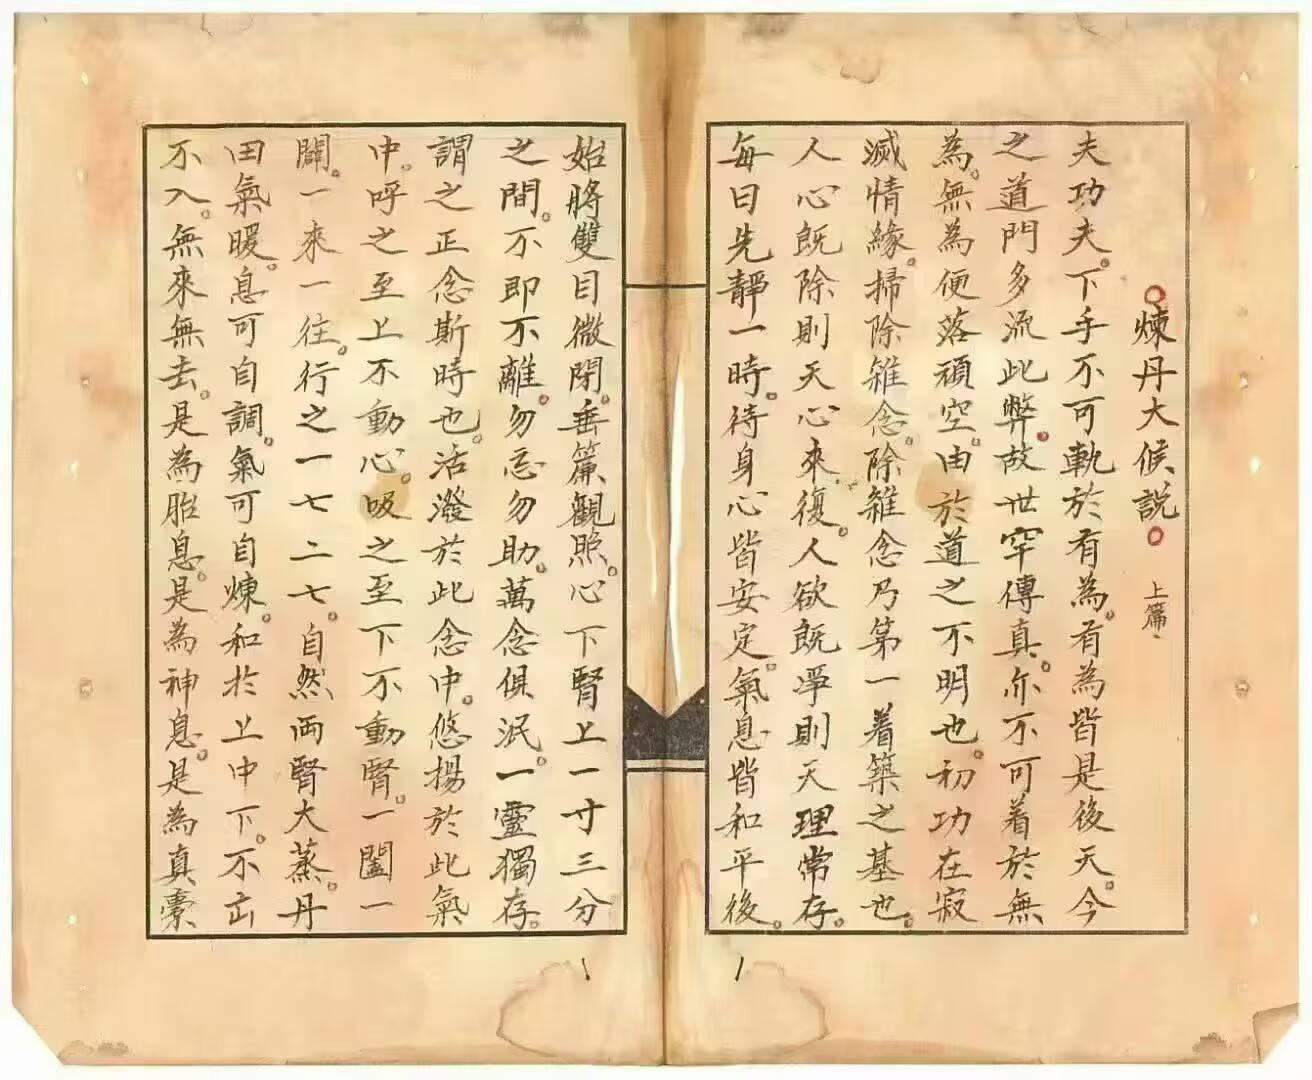 煉丹大候說 上篇
夫功夫。下手不可軌於有為。有為皆是後天。今
之道門多流此弊。故世罕傳真。亦不可着於無
為。無為便落頑空。由於道之不明也。初功在寂
滅情緣。掃除雜念。除雜念乃第一着築之基也。
人心既除則天心來復。人欲既凈則天理常存。
每日先靜一時。待身心皆安定。氣息皆和平後。
始將雙目微閉。垂簾觀照。心下腎上一寸三分
之間。不即不離。勿忘勿助。萬念俱泯。一靈獨存。
謂之正念斯時也。活潑於此念中。悠揚於此氣
中。呼之至上不動心。吸之至下不動腎。一闔一
闢。一來一往。行之一七二七。自然両腎大蒸。丹
田氣暖。息可自調。氣可自煉。和於上中下。不出
不入。無來無去。是為胎息。是為神息。是為真橐